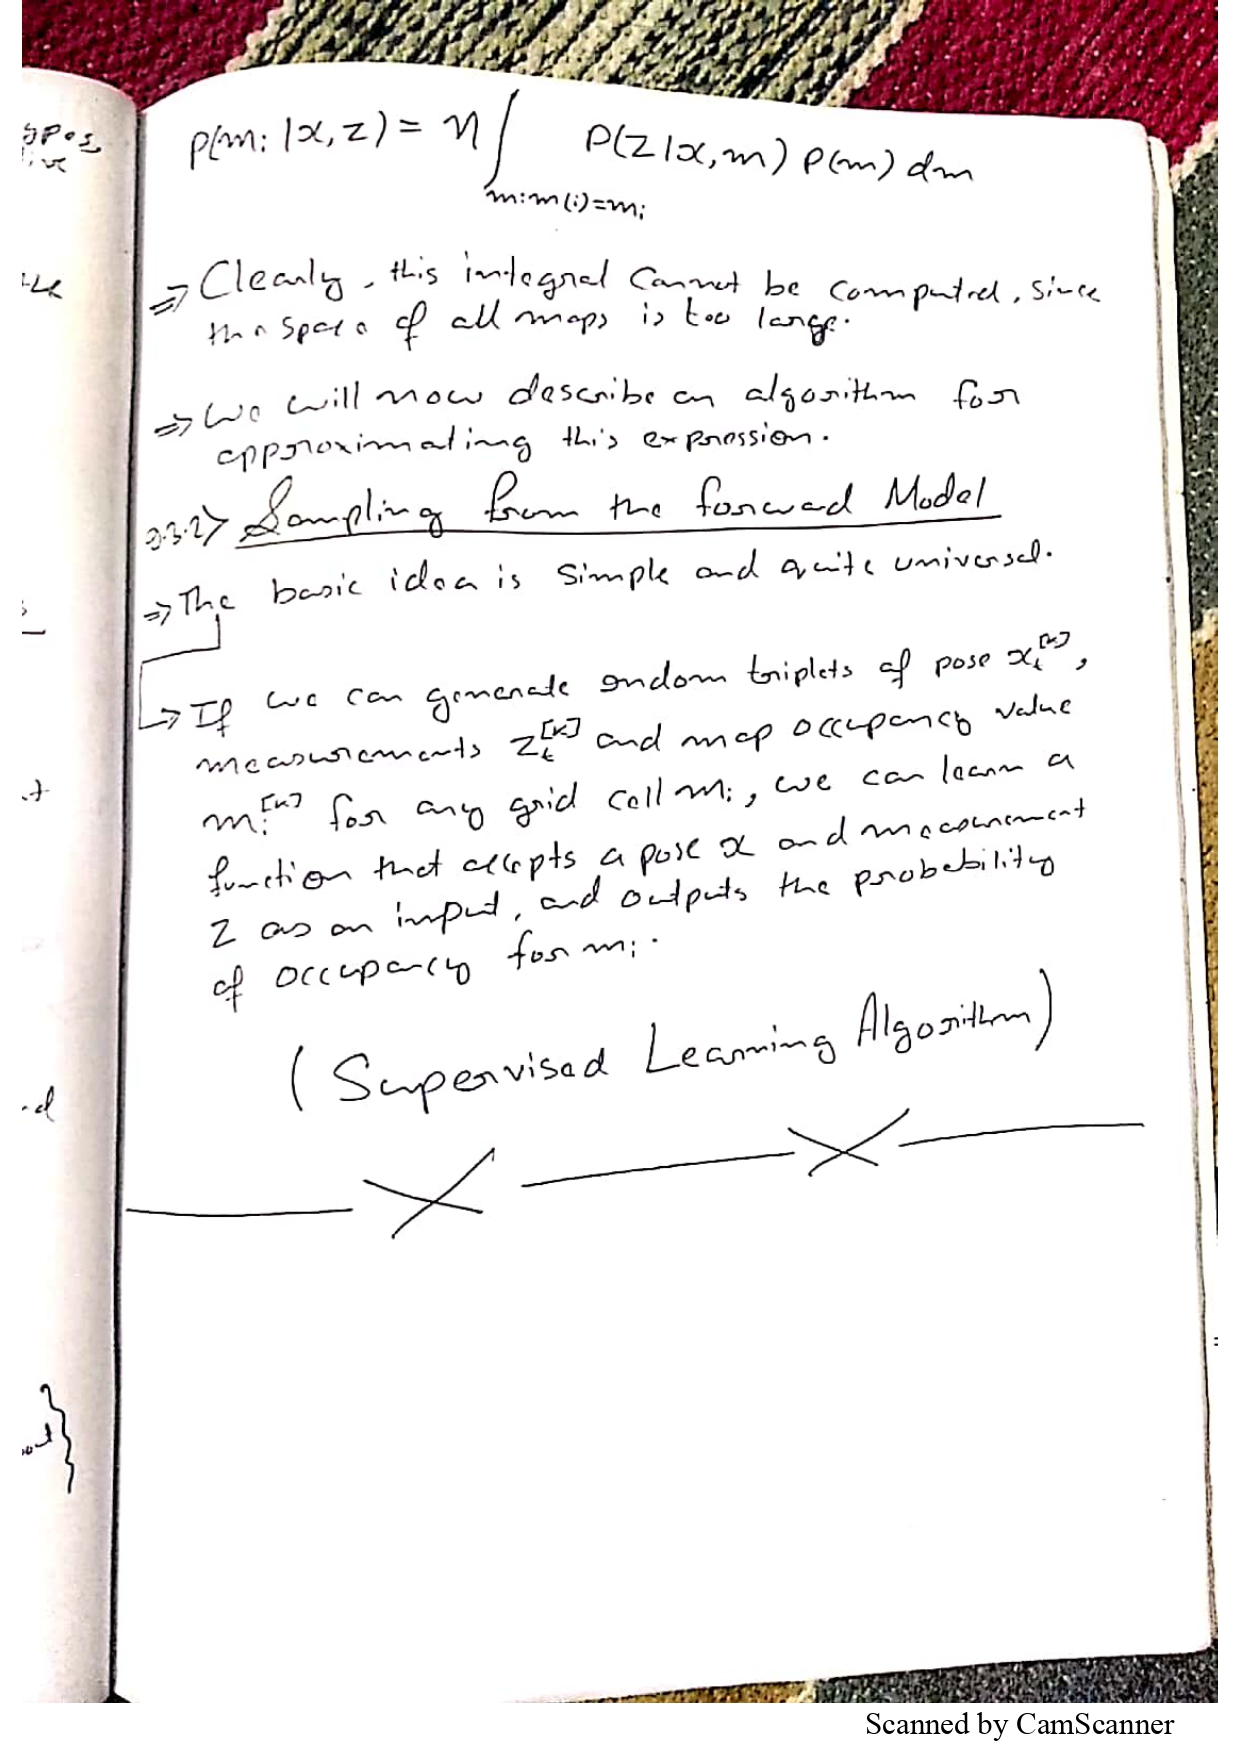 p(mᵢ|x,z) = η ∫_{m:m(i)=mᵢ} P(z|x,m) p(m) dm
⇒ Clearly, this integral cannot be computed, since
the space of all maps is too large.
⇒ We will now describe an algorithm for
approximating this expression.
9.3.2> Sampling from the forward Model
⇒ The basic idea is simple and quite universal.
→ If we can generate random triplets of pose xₜ^[k],
measurements zₜ^[k] and map occupancy value
mᵢ^[k] for any grid cell mᵢ, we can learn a
function that accepts a pose x and measurement
z as an input, and outputs the probability
of occupancy for mᵢ.
(Supervised Learning Algorithm)
Scanned by CamScanner